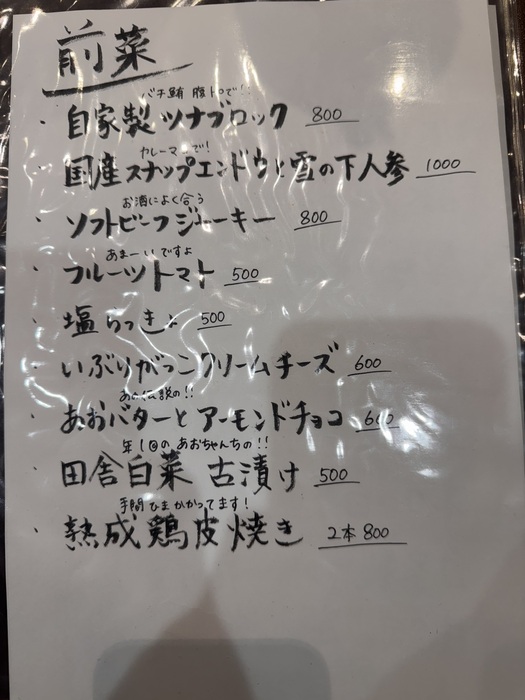 前菜
バチ鮪 腹トロで!!
・自家製ツナブロック 800
カレーマヨで!
・国産スナップエンドウと雪の下人参 1000
お酒によく合う
・ソフトビーフジャーキー 800
あまーいですよ
・フルーツトマト 500
・塩らっきょ 500
・いぶりがっこクリームチーズ 600
あの伝説の!!
・あおバターとアーモンドチョコ 600
年1回の あおちゃんちの!!
田舎白菜 古漬け 500
手間ひまかかってます!
・熟成鶏皮焼き 2本 800